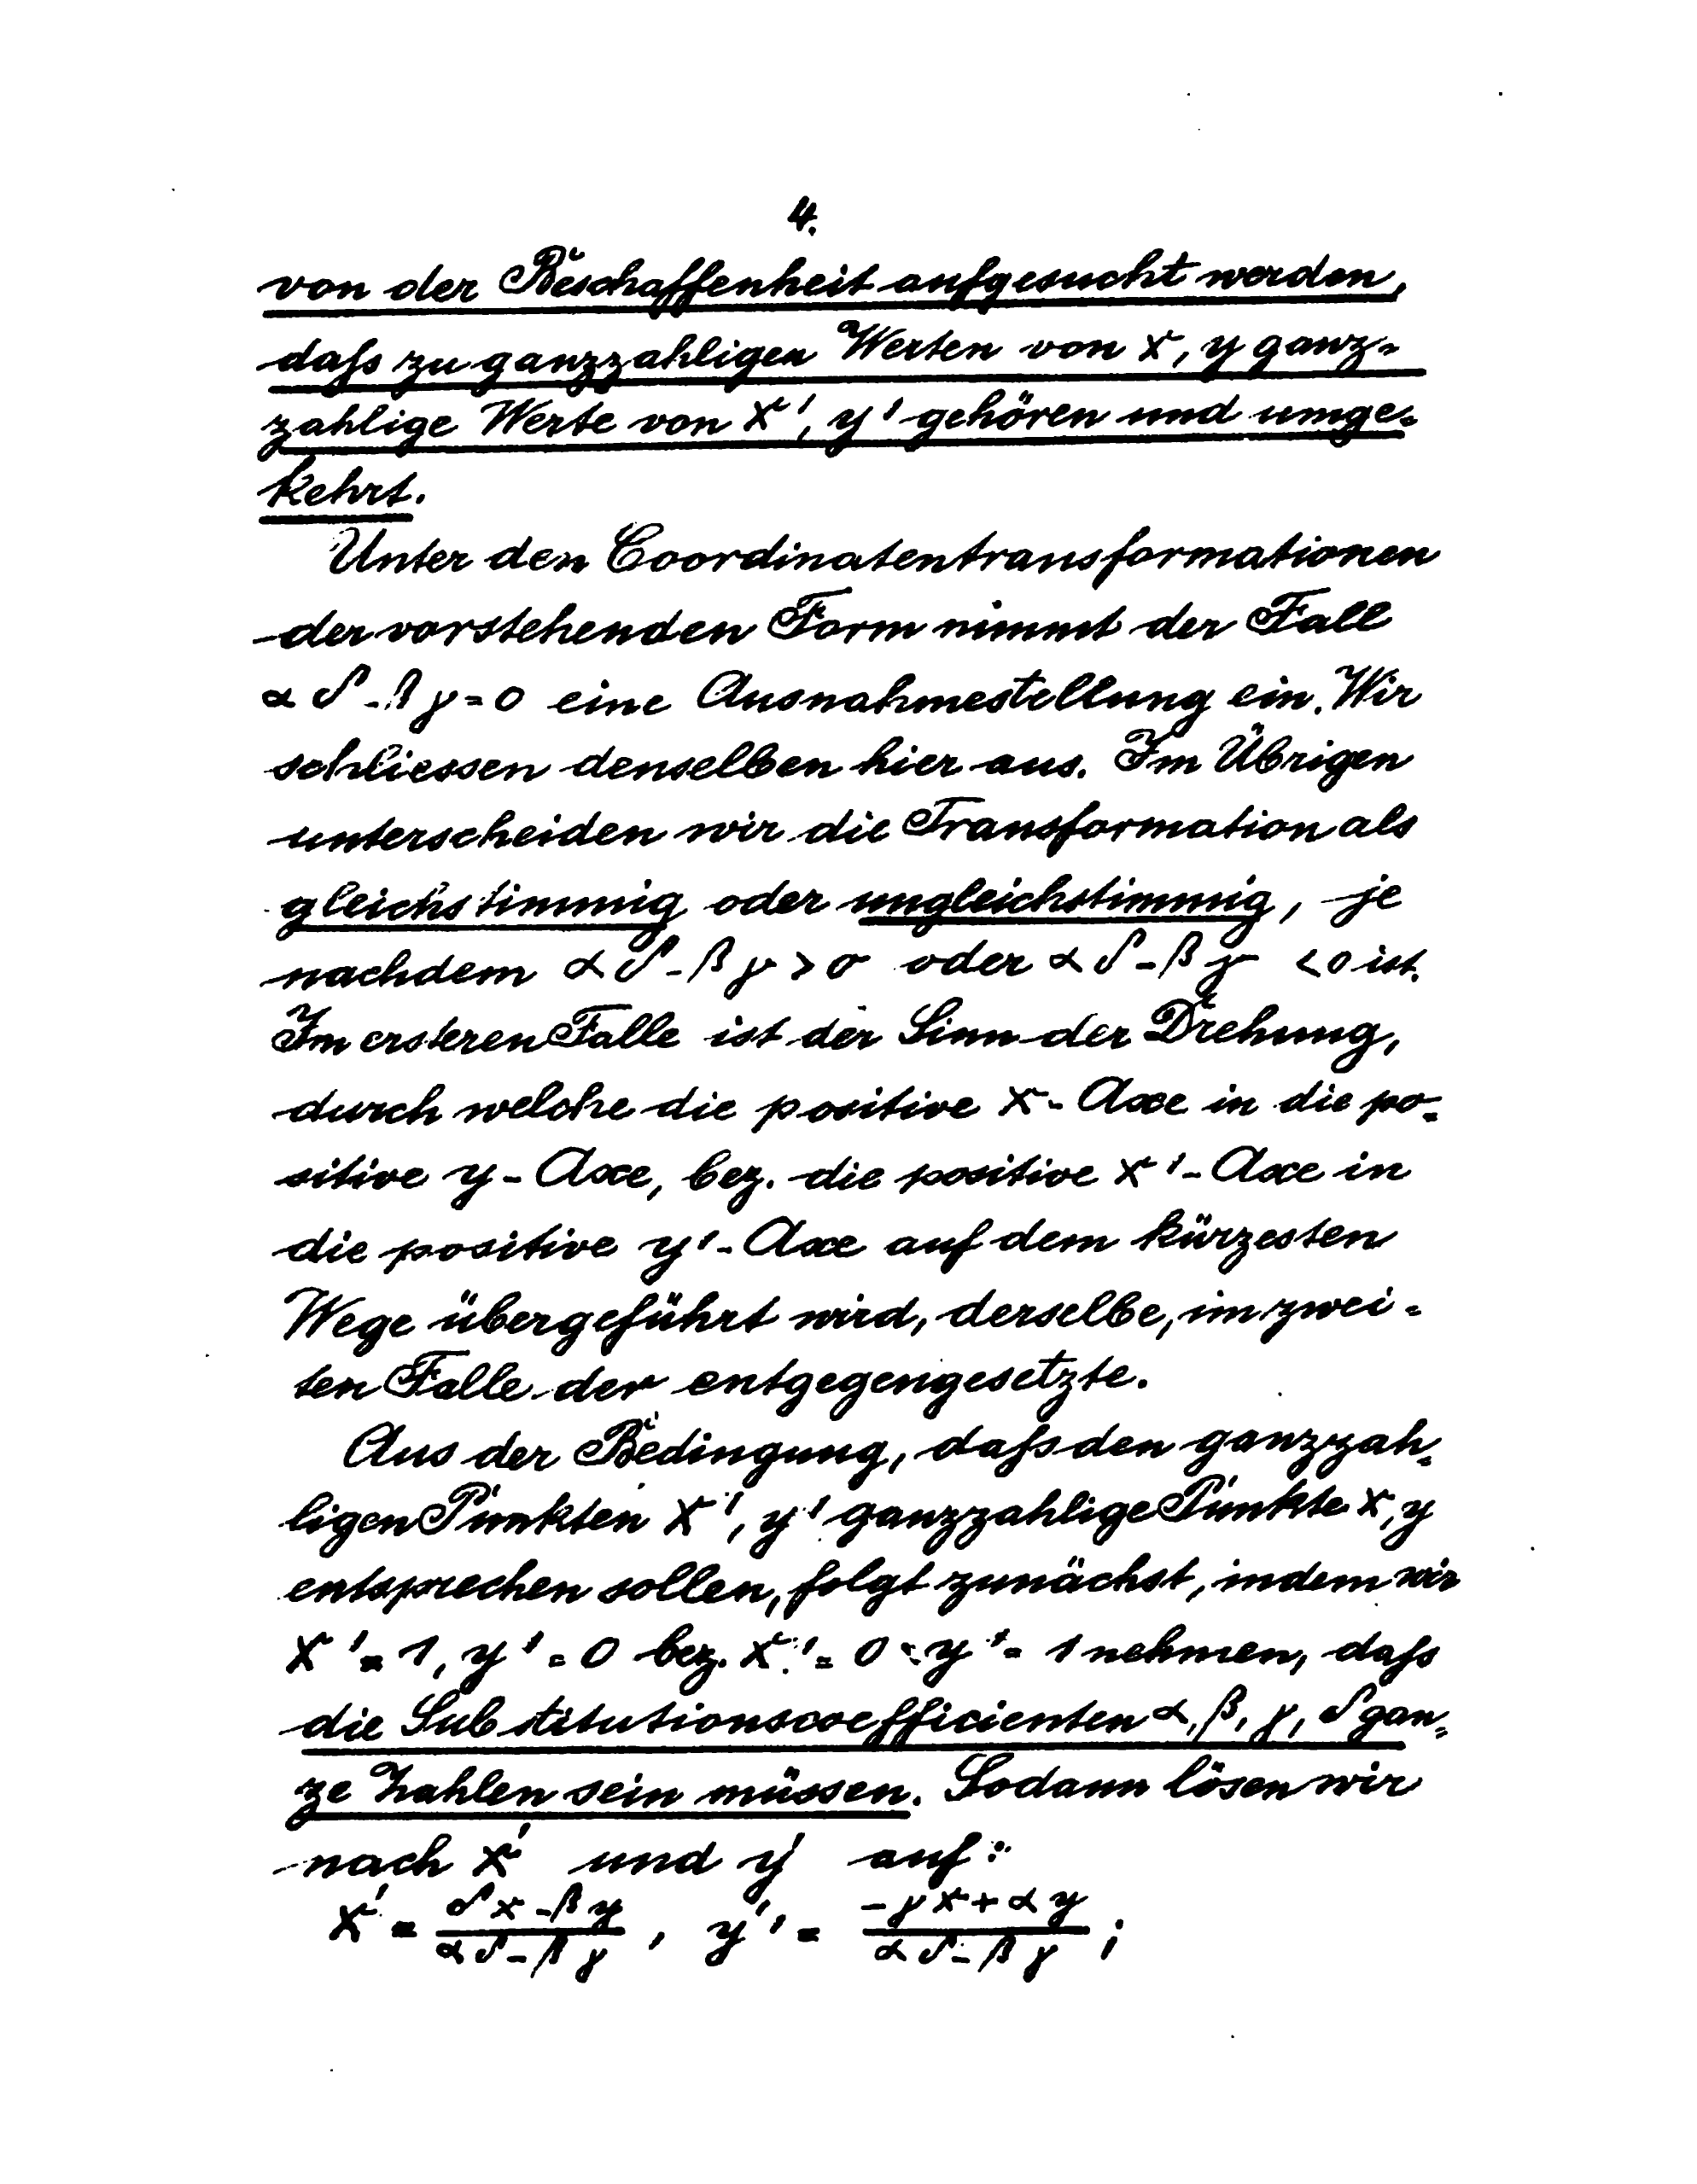 4.
von der Beschaffenheit aufgesucht werden,
daſs zu ganzzahligen Werten von x, y ganz-
zahlige Werte von x', y' gehören und umge-
kehrt.
Unter den Coordinatentransformationen
der vorstehenden Form nimmt der Fall
αδ-βγ=0 eine Ausnahmestellung ein. Wir
schliessen denselben hier aus. Im Übrigen
unterscheiden wir die Transformation als
gleichstimmig oder ungleichstimmig, je
nachdem αδ-βγ>0 oder αδ-βγ <0 ist.
Im ersteren Falle ist der Sinn der Drehung,
durch welche die positive x-Axe in die po-
sitive y-Axe, bez. die positive x'-Axe in
die positive y'-Axe auf dem kürzesten
Wege übergeführt wird, derselbe, im zwei-
ten Falle der entgegengesetzte.
Aus der Bedingung, daſs den ganzzah-
ligen Punkten x', y' ganzzahlige Punkte x, y
entsprechen sollen, folgt zunächst, indem wir
x'=1, y'=0 bez. x'=0, y'=1 nehmen, daſs
die Substitutionscoefficienten α, β, γ, δ gan-
ze Zahlen sein müssen. Sodann lösen wir
nach x' und y' auf:
x' = (δx-βy)/(αδ-βγ), y' = (-γx+αy)/(αδ-βγ);